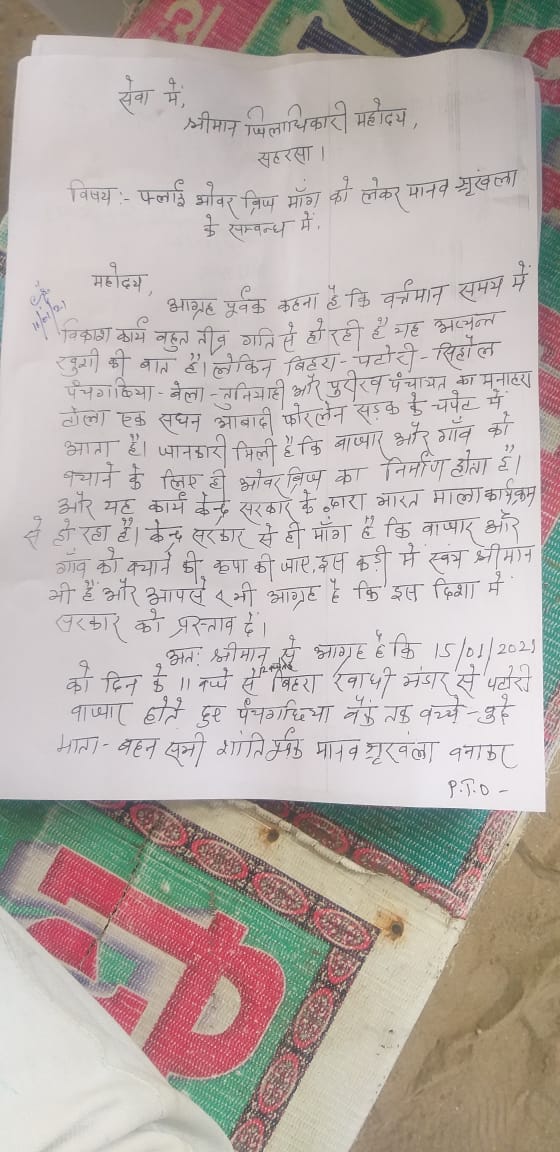 सेवा में,
श्रीमान जिलाधिकारी महोदय,
सहरसा।
विषय:- फ्लाई ओवर ब्रिज माँग को लेकर मानव श्रृंखला
के सम्बन्ध में.
महोदय,
आग्रह पूर्वक कहना है कि वर्त्तमान समय में
विकाश कार्य बहुत तीव्र गति से हो रही है यह अत्यन्त
खुशी की बात है। लेकिन बिहरा - पटोरी - सिहोल
पंचगछिया - बेला - तुनियाही और पुरीख पंचायत का मनोहरा
टोला एक सघन आबादी फोरलेन सड़क के चपेट में
आता है। जानकारी मिली है कि बाजार और गाँव को
बचाने के लिए ही ओवर ब्रिज का निर्माण होता है।
और यह कार्य केन्द्र सरकार के द्वारा भारत माला कार्यक्रम
से हो रहा है। केन्द्र सरकार से ही माँग है कि बाजार और
गाँव को बचाने की कृपा की जाए. इस कड़ी में स्वंय श्रीमान
भी हैं और आपसे भी आग्रह है कि इस दिशा में
सरकार को प्रस्ताव दें।
अतः श्रीमान से आग्रह है कि 15/01/2021
को दिन के 11 बजे से बिहरा खादी भंडार से पटोरी
बाजार होते हुए पंचगछिया बैंक तक बच्चे - बुढ़े
माता - बहन सभी शांति पूर्वक मानव श्रृंखला बनाकर
P.T.O -